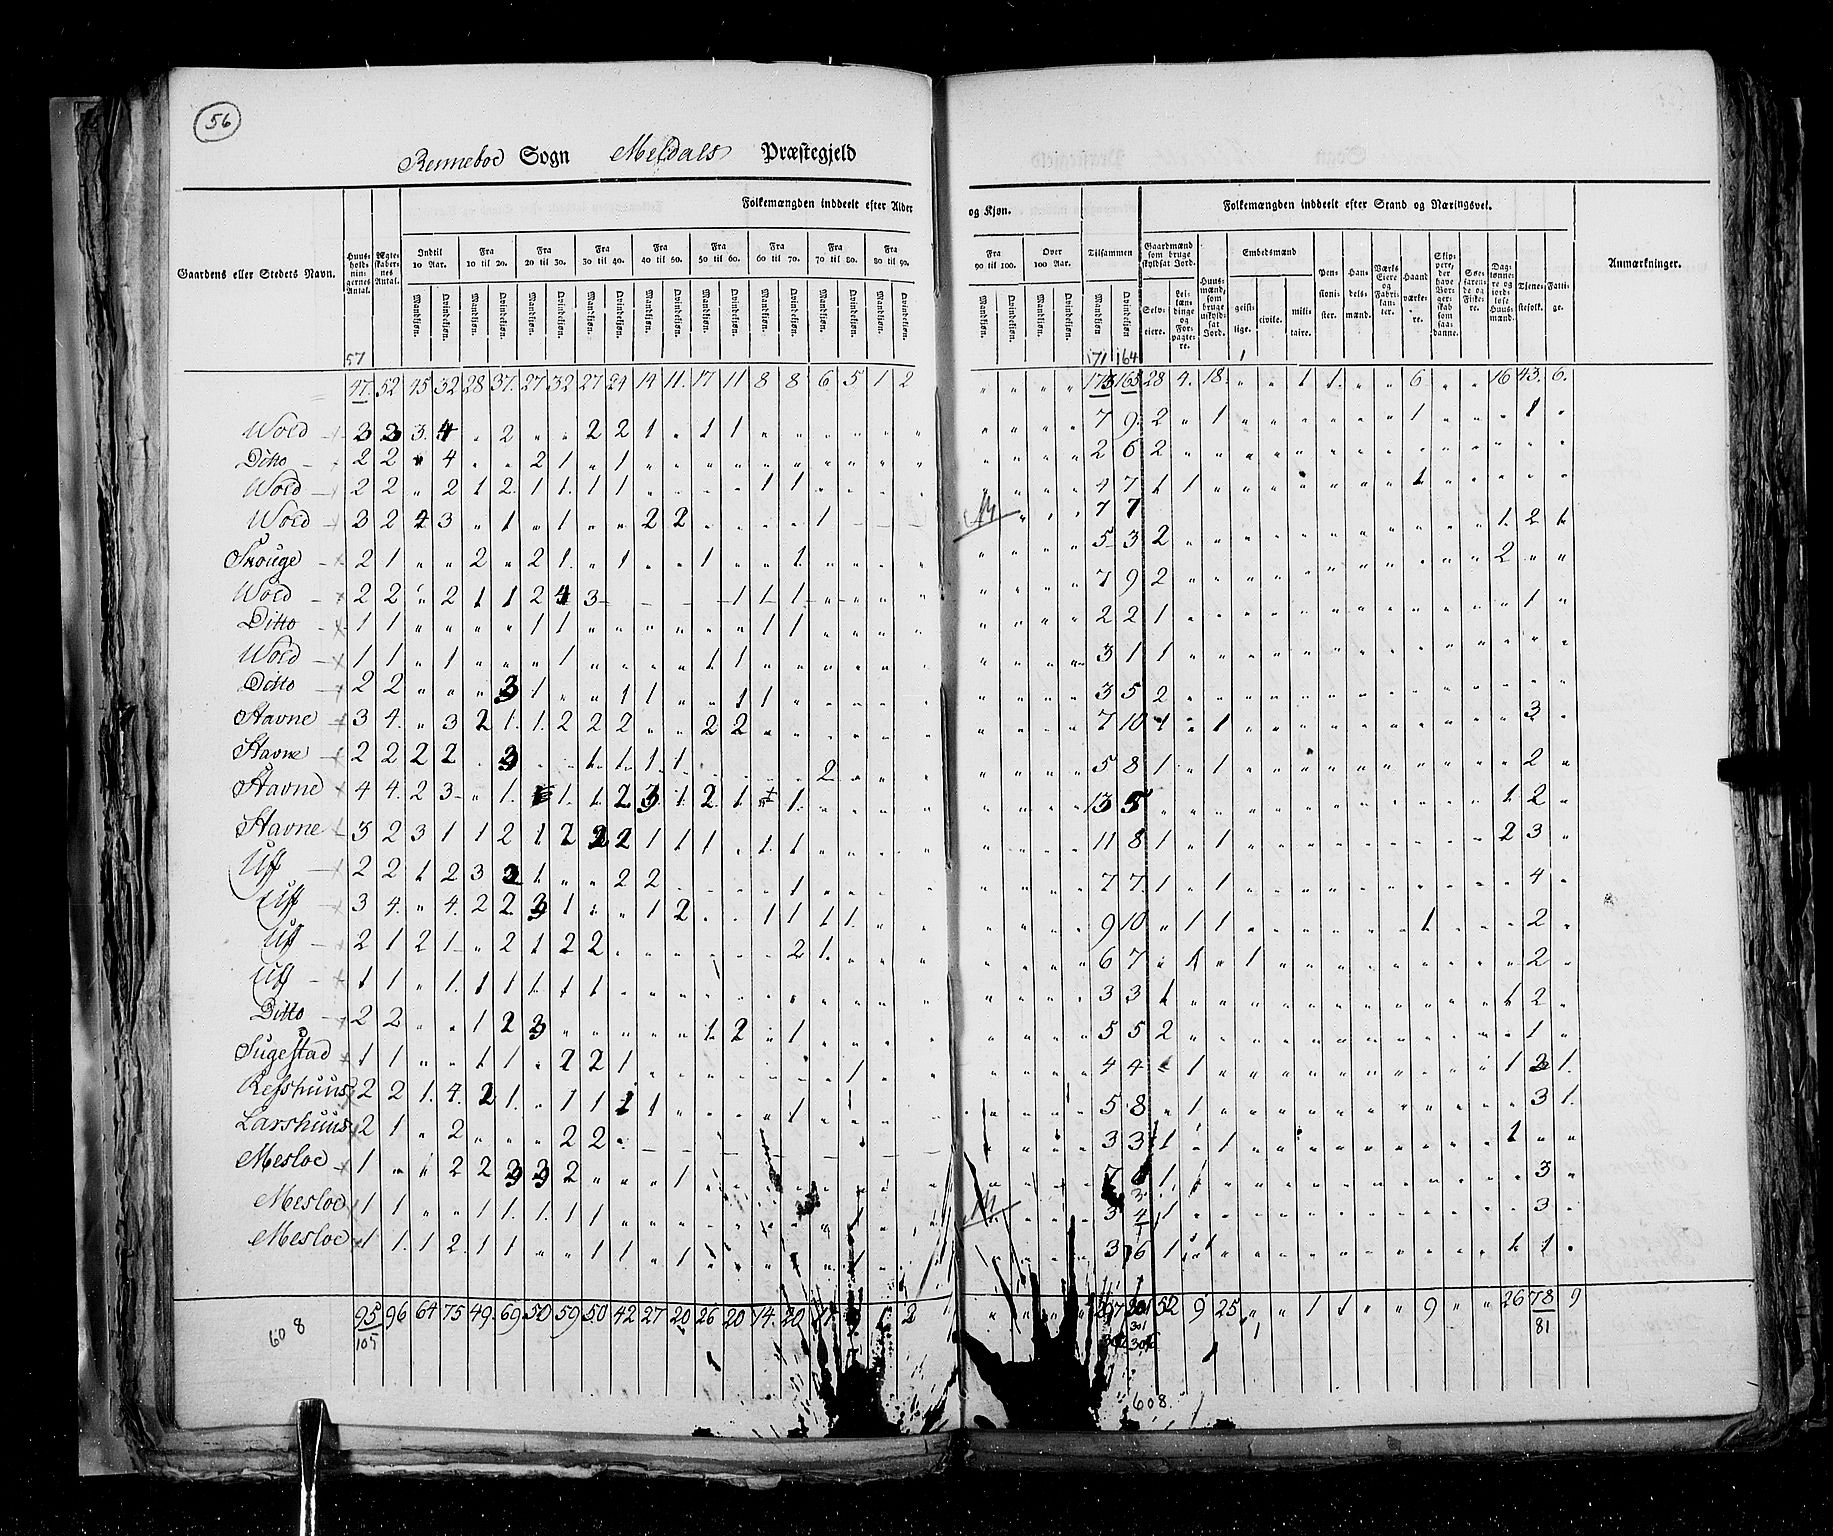 56
Renneboe Sogn Meldals Præstegjeld
Folkemængden inddeelt efter Alder og Kjøn. Folkemængden inddeelt efter Stand og Næringsvei.
Gaardens eller Stedets Navn. Huusholdningernes Antal. Ægteskabernes Antal. Indtil 10 Aar. Fra 10 til 20. Fra 20 til 30. Fra 30 til 40. Fra 40 til 50. Fra 50 til 60. Fra 60 til 70. Fra 70 til 80. Fra 80 til 90. Fra 90 til 100. Over 100 Aar. Tilsammen Gaardmænd som bruge skyldsat Jord. Huusmænd, som bruge uskyldsat Jord. Embedsmænd Pensionister. Handelsmænd. Værks Eiere og Fabrikanter. Haandværkere. Skippere, der have Borgerskab som saadanne. Søefarende og Fiskere. Daglønnere og jordløse Huusmænd. Tjenestefolk. Fattige. Anmærkninger.
Mandkjøn. Qvindekjøn. Selveiere. Leilændinge og Forpagtere. geistlige. civile. militaire.
57 171 164 1
47. 52 45 32 28 37. 27 32 27 24 14 11. 17 11 8 8 6 5 1 2 165 28 4. 18. 1 1. 6 16 43. 6.
Wold 3 3 3. 4 2 2 2 1 1 1 7 9. 2 1 1 1
Ditto 2 2 4 2 1 1 2 6 2
Wold 2 2 2 1 2 1 1. 1 1 1 1 4 7 1 1 1
Wold 3 2 2 3 1 1 2 2 1 7 7 1. 2 1
Skouge 2 1 2 2 1. 1 1 1. 5 3 2 2
Wold 2 2 2 1 1 2 4 3 1 1 1 7 9 2
Ditto 1 1 1 1 1 1 2 2 1 1
Wold 1 1 1 1 1 1 3 1 1
Ditto 2 2 3 1 1 1 1 1 3 5 2
Stavne 3 4. 3 2 1. 1. 2 2 2 2 2 7 10 1 1 3
Stavne 2 2 2 2 3 1. 1. 1 1 2 5 8 1 1 2
Stavne 4 4. 2 3 1. 1. 1 2 3 1. 2 1 1. 13 5 1 2
Stavne 3 2 3 1 1 2 1 2 2 2 1 1 1 1. 1 11 8 1 1 2 3
Uff 2 2 1 2 3 2 1 2 2 1 7 7 1 1 4
Uff 3 4. 4. 2 2 3 1 1 2 1 1 1 1 9 10 1 1 1 2
Uff 2 1 2 1 2 1 2 2 2 1 6 7 1 1 2
Uff 1 1 1. 1 1 1. 1 1 3 3 1 1 2
Ditto 2 2 1 2 3 1 2 1 5 5 2 1
1 1 1 1 2 2 1 1 4 4 1 1 1.
Refshuus 2 2 1. 4. 2 1. 1 1 1 1 1 5 8 1 3 1.
Larshuus 2 1 2 2 2 3 3 1 1 1
Mesloe 1 2 2 3 3 2 1 7 1 3
Mesloe 1 1 1 1. 1. 1 1 3 4 1 3
Mesloe 1 1. 1 2 1 1 1 1 1 3 6 1 1 1 1
95 96 64 75 49. 69 50 59 50 42 27 20 26 20 14. 20 2 52 9 25 1 1 9 26 78 9
608 105 301 81
608.